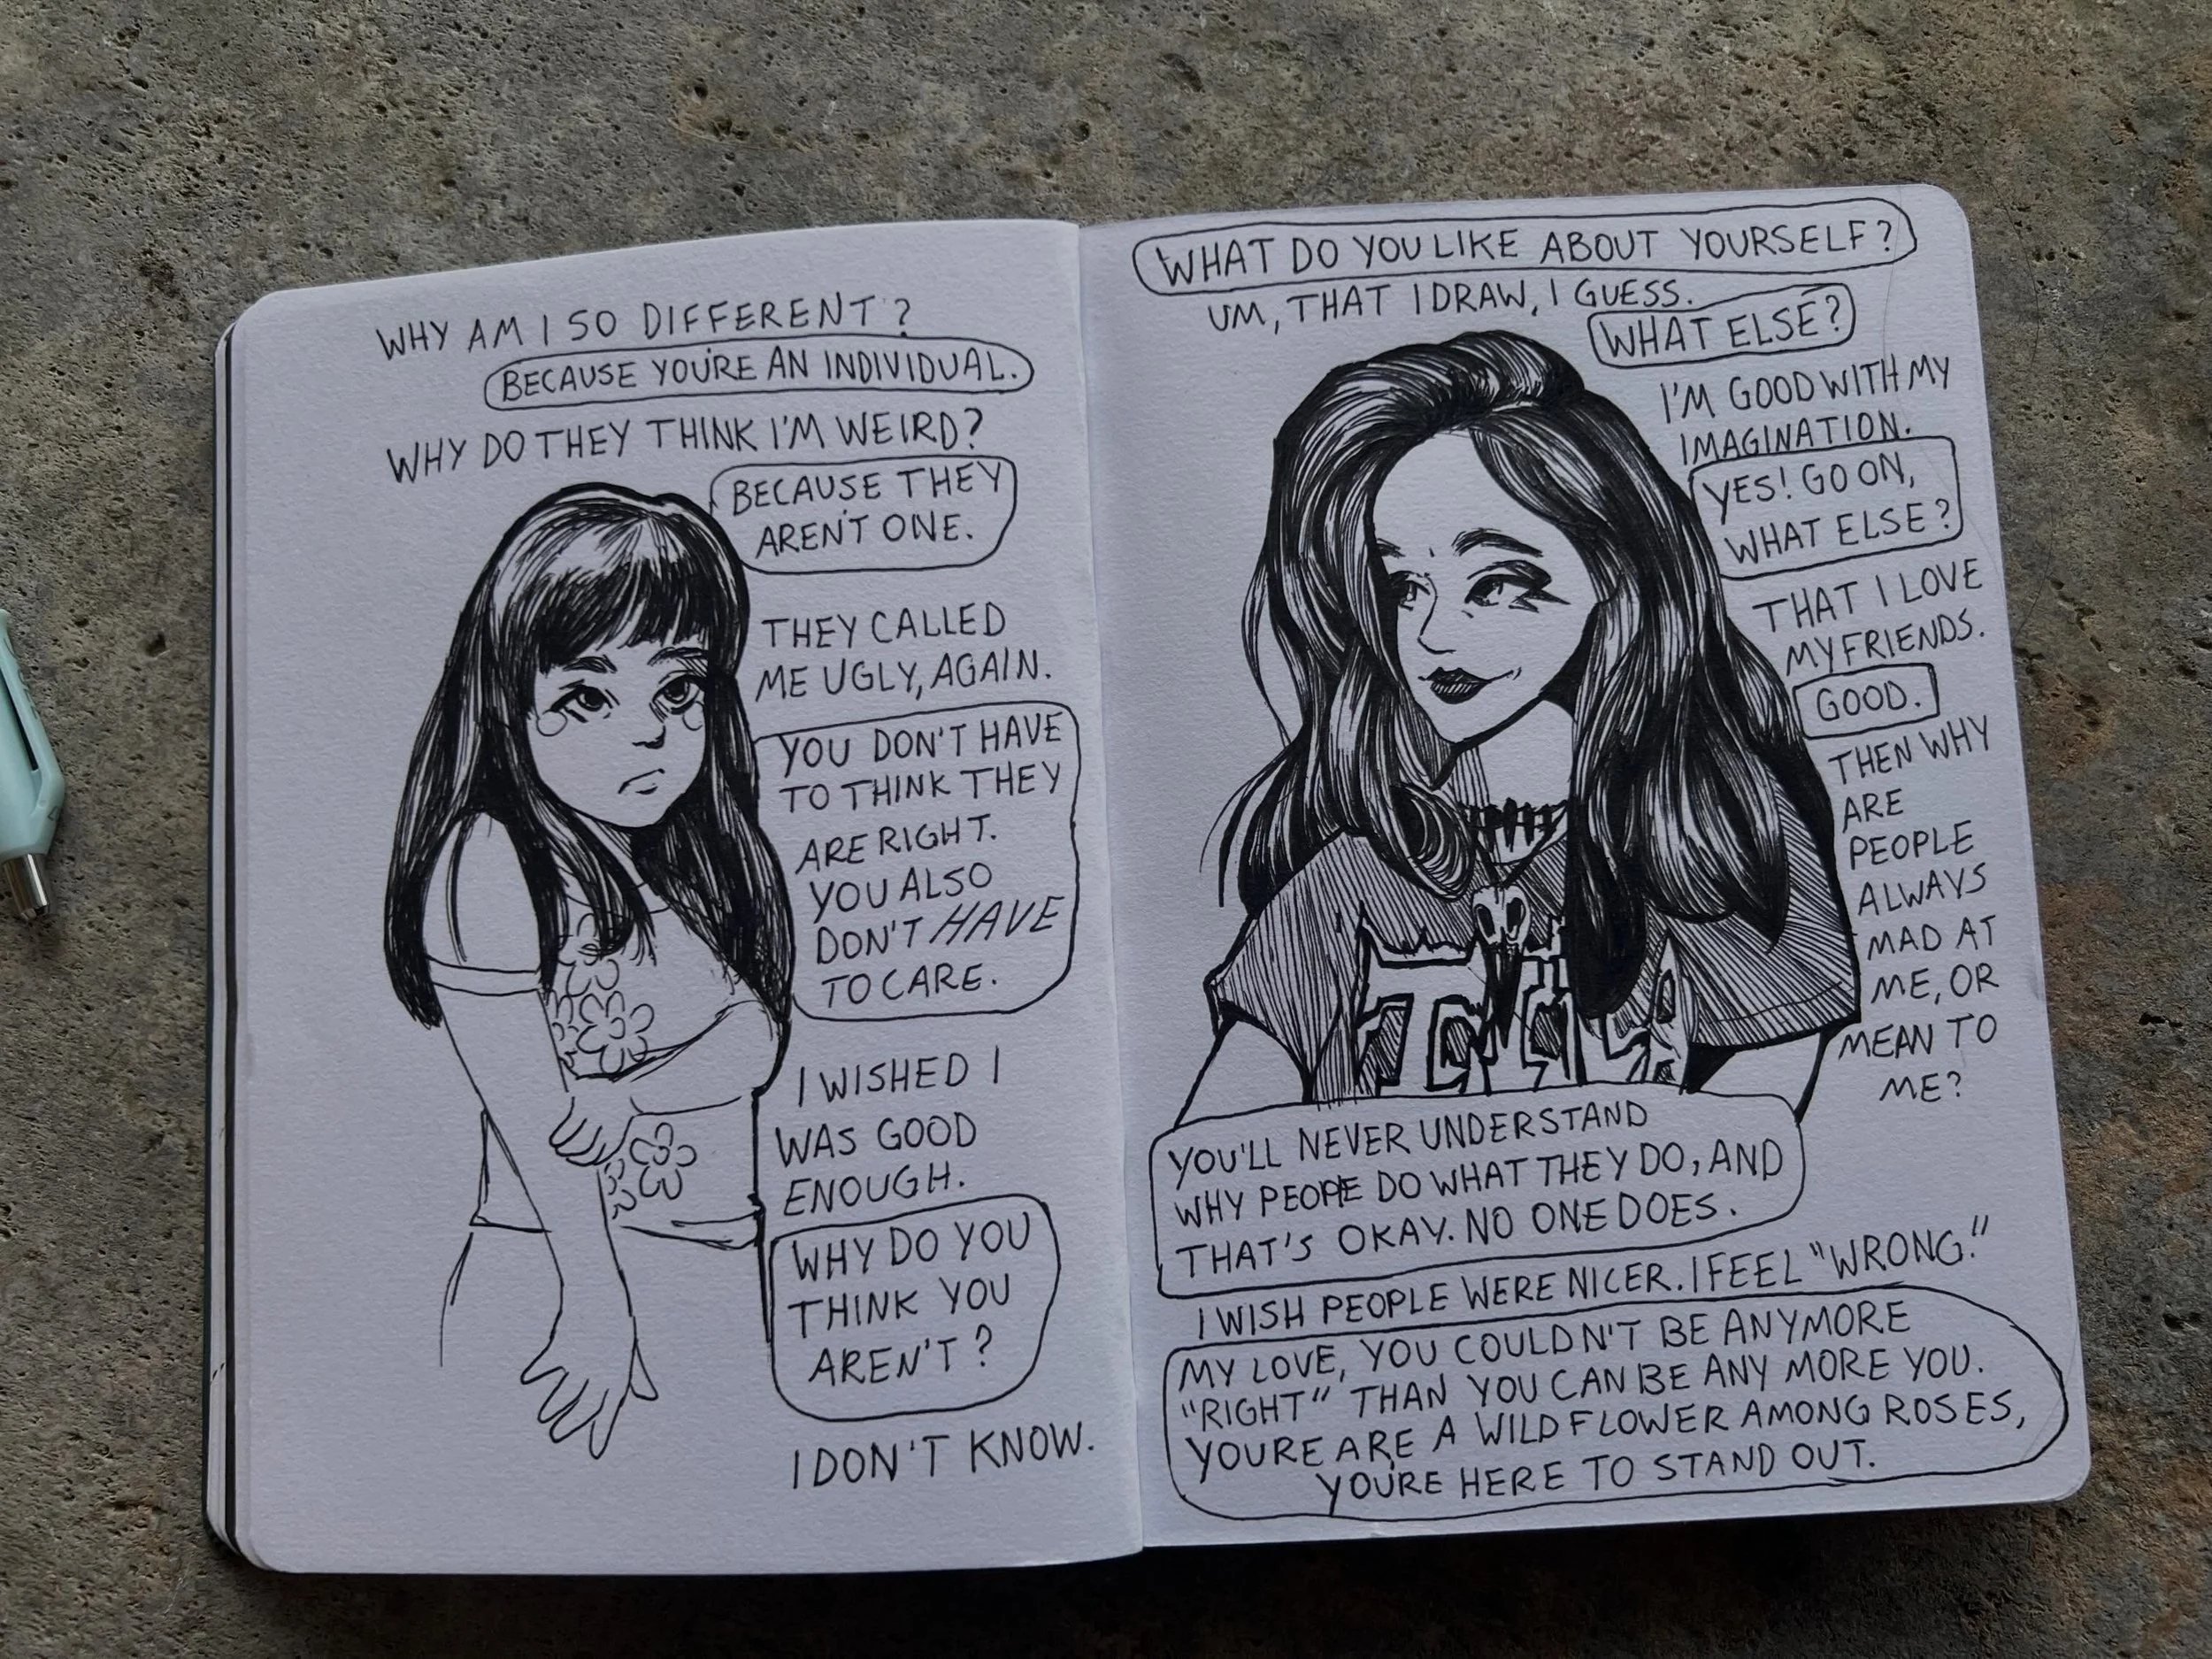 WHY AM I SO DIFFERENT?
BECAUSE YOU'RE AN INDIVIDUAL.
WHY DO THEY THINK I'M WEIRD?
BECAUSE THEY
AREN'T ONE.
THEY CALLED
ME UGLY, AGAIN.
YOU DON'T HAVE
TO THINK THEY
ARE RIGHT.
YOU ALSO
DON'T HAVE
TO CARE.
I WISHED I
WAS GOOD
ENOUGH.
WHY DO YOU
THINK YOU
AREN'T?
I DON'T KNOW.
WHAT DO YOU LIKE ABOUT YOURSELF?
UM, THAT I DRAW, I GUESS.
WHAT ELSE?
I'M GOOD WITH MY
IMAGINATION.
YES! GO ON,
WHAT ELSE?
THAT I LOVE
MY FRIENDS.
GOOD.
THEN WHY
ARE
PEOPLE
ALWAYS
MAD AT
ME, OR
MEAN TO
ME?
YOU'LL NEVER UNDERSTAND
WHY PEOPLE DO WHAT THEY DO, AND
THAT'S OKAY. NO ONE DOES.
I WISH PEOPLE WERE NICER. I FEEL "WRONG."
MY LOVE, YOU COULDN'T BE ANYMORE
"RIGHT" THAN YOU CAN BE ANY MORE YOU.
YOURE ARE A WILDFLOWER AMONG ROSES,
YOU'RE HERE TO STAND OUT.